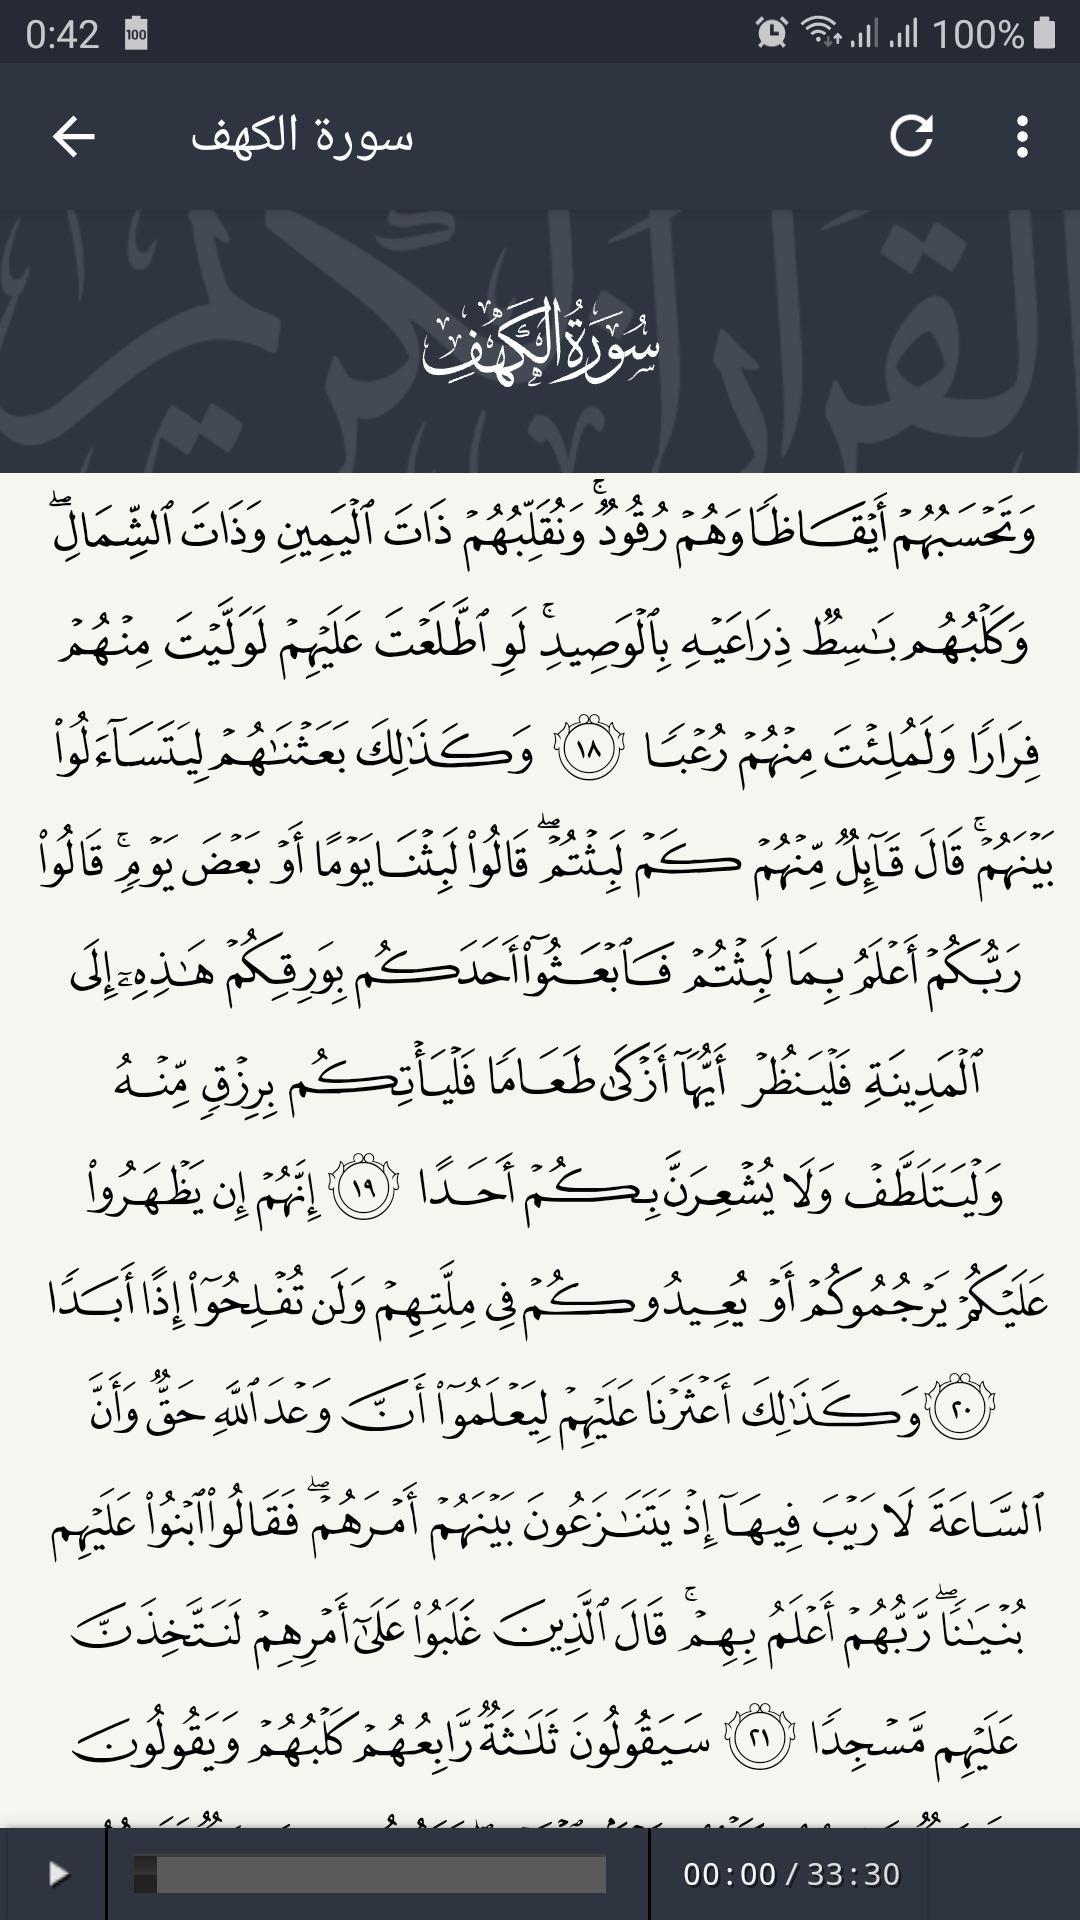 0:42 100 100%
سورة الكهف
القرآن الكريم
سُورَةُ الكَهۡفِ
وَتَحۡسَبُهُمۡ أَيۡقَاظٗا وَهُمۡ رُقُودٞۚ وَنُقَلِّبُهُمۡ ذَاتَ ٱلۡيَمِينِ وَذَاتَ ٱلشِّمَالِۖ
وَكَلۡبُهُم بَٰسِطٞ ذِرَاعَيۡهِ بِٱلۡوَصِيدِۚ لَوِ ٱطَّلَعۡتَ عَلَيۡهِمۡ لَوَلَّيۡتَ مِنۡهُمۡ
فِرَارٗا وَلَمُلِئۡتَ مِنۡهُمۡ رُعۡبٗا ١٨ وَكَذَٰلِكَ بَعَثۡنَٰهُمۡ لِيَتَسَآءَلُواْ
بَيۡنَهُمۡۚ قَالَ قَآئِلٞ مِّنۡهُمۡ كَمۡ لَبِثۡتُمۡۖ قَالُواْ لَبِثۡنَا يَوۡمًا أَوۡ بَعۡضَ يَوۡمٖۚ قَالُواْ
رَبُّكُمۡ أَعۡلَمُ بِمَا لَبِثۡتُمۡ فَٱبۡعَثُوٓاْ أَحَدَكُم بِوَرِقِكُمۡ هَٰذِهِۦٓ إِلَى
ٱلۡمَدِينَةِ فَلۡيَنظُرۡ أَيُّهَآ أَزۡكَىٰ طَعَامٗا فَلۡيَأۡتِكُم بِرِزۡقٖ مِّنۡهُ
وَلۡيَتَلَطَّفۡ وَلَا يُشۡعِرَنَّ بِكُمۡ أَحَدًا ١٩ إِنَّهُمۡ إِن يَظۡهَرُواْ
عَلَيۡكُمۡ يَرۡجُمُوكُمۡ أَوۡ يُعِيدُوكُمۡ فِي مِلَّتِهِمۡ وَلَن تُفۡلِحُوٓاْ إِذًا أَبَدٗا
٢٠ وَكَذَٰلِكَ أَعۡثَرۡنَا عَلَيۡهِمۡ لِيَعۡلَمُوٓاْ أَنَّ وَعۡدَ ٱللَّهِ حَقّٞ وَأَنَّ
ٱلسَّاعَةَ لَا رَيۡبَ فِيهَآ إِذۡ يَتَنَٰزَعُونَ بَيۡنَهُمۡ أَمۡرَهُمۡۖ فَقَالُواْ ٱبۡنُواْ عَلَيۡهِم
بُنۡيَٰنٗاۖ رَّبُّهُمۡ أَعۡلَمُ بِهِمۡۚ قَالَ ٱلَّذِينَ غَلَبُواْ عَلَىٰٓ أَمۡرِهِمۡ لَنَتَّخِذَنَّ
عَلَيۡهِم مَّسۡجِدٗا ٢١ سَيَقُولُونَ ثَلَٰثَةٞ رَّابِعُهُمۡ كَلۡبُهُمۡ وَيَقُولُونَ
00:00 / 33:30